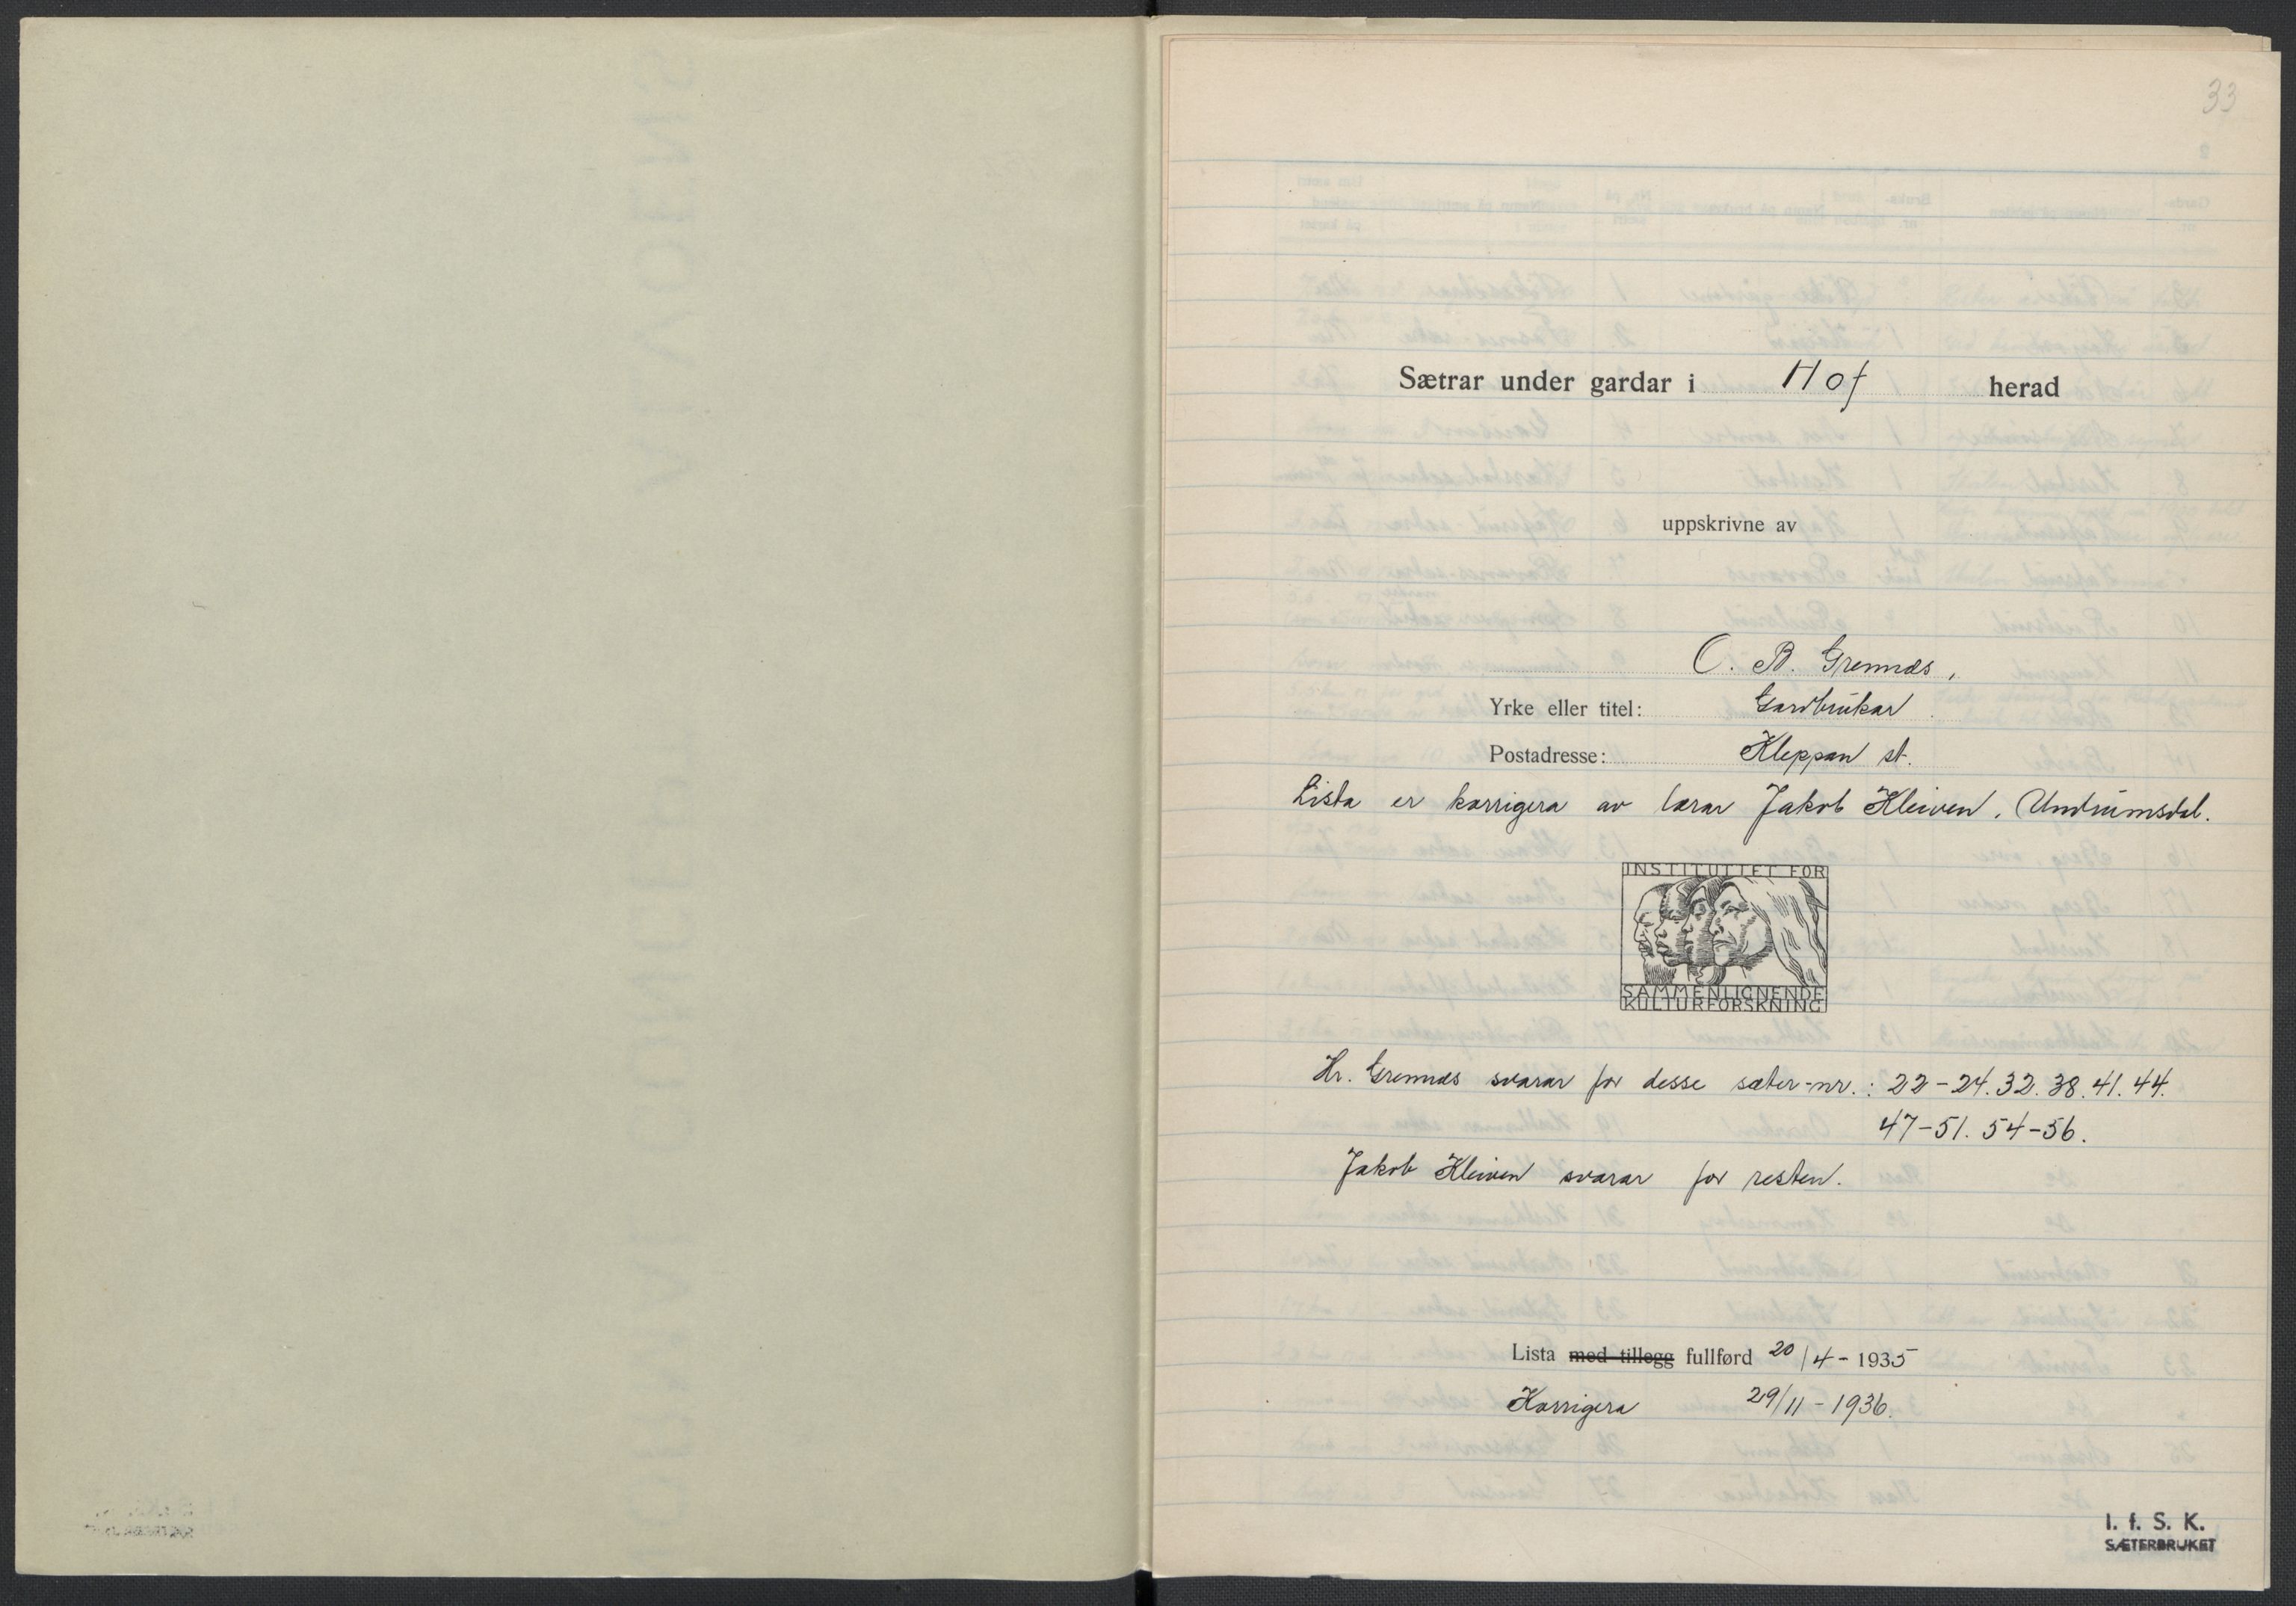 33
Sætrar under gardar i Hof herad
uppskrivne av
O. B. Grennes,
Yrke eller titel: Gardbrukar
Postadresse: Kleppan st.
Lista er korrigera av lærar Jakob Kleiven, Undrumsdal.
INSTITUTTET FOR
SAMMENLIGNENDE
KULTURFORSKNING
Hr. Grennes svarar for desse sæter-nr.: 22-24. 32. 38. 41. 44.
47-51. 54-56.
Jakob Kleiven svarar for resten.
Lista med tillegg fullførd 20/4 - 1935
Korrigera 29/11 - 1936.
I. f. S. K.
SÆTERBRUKET